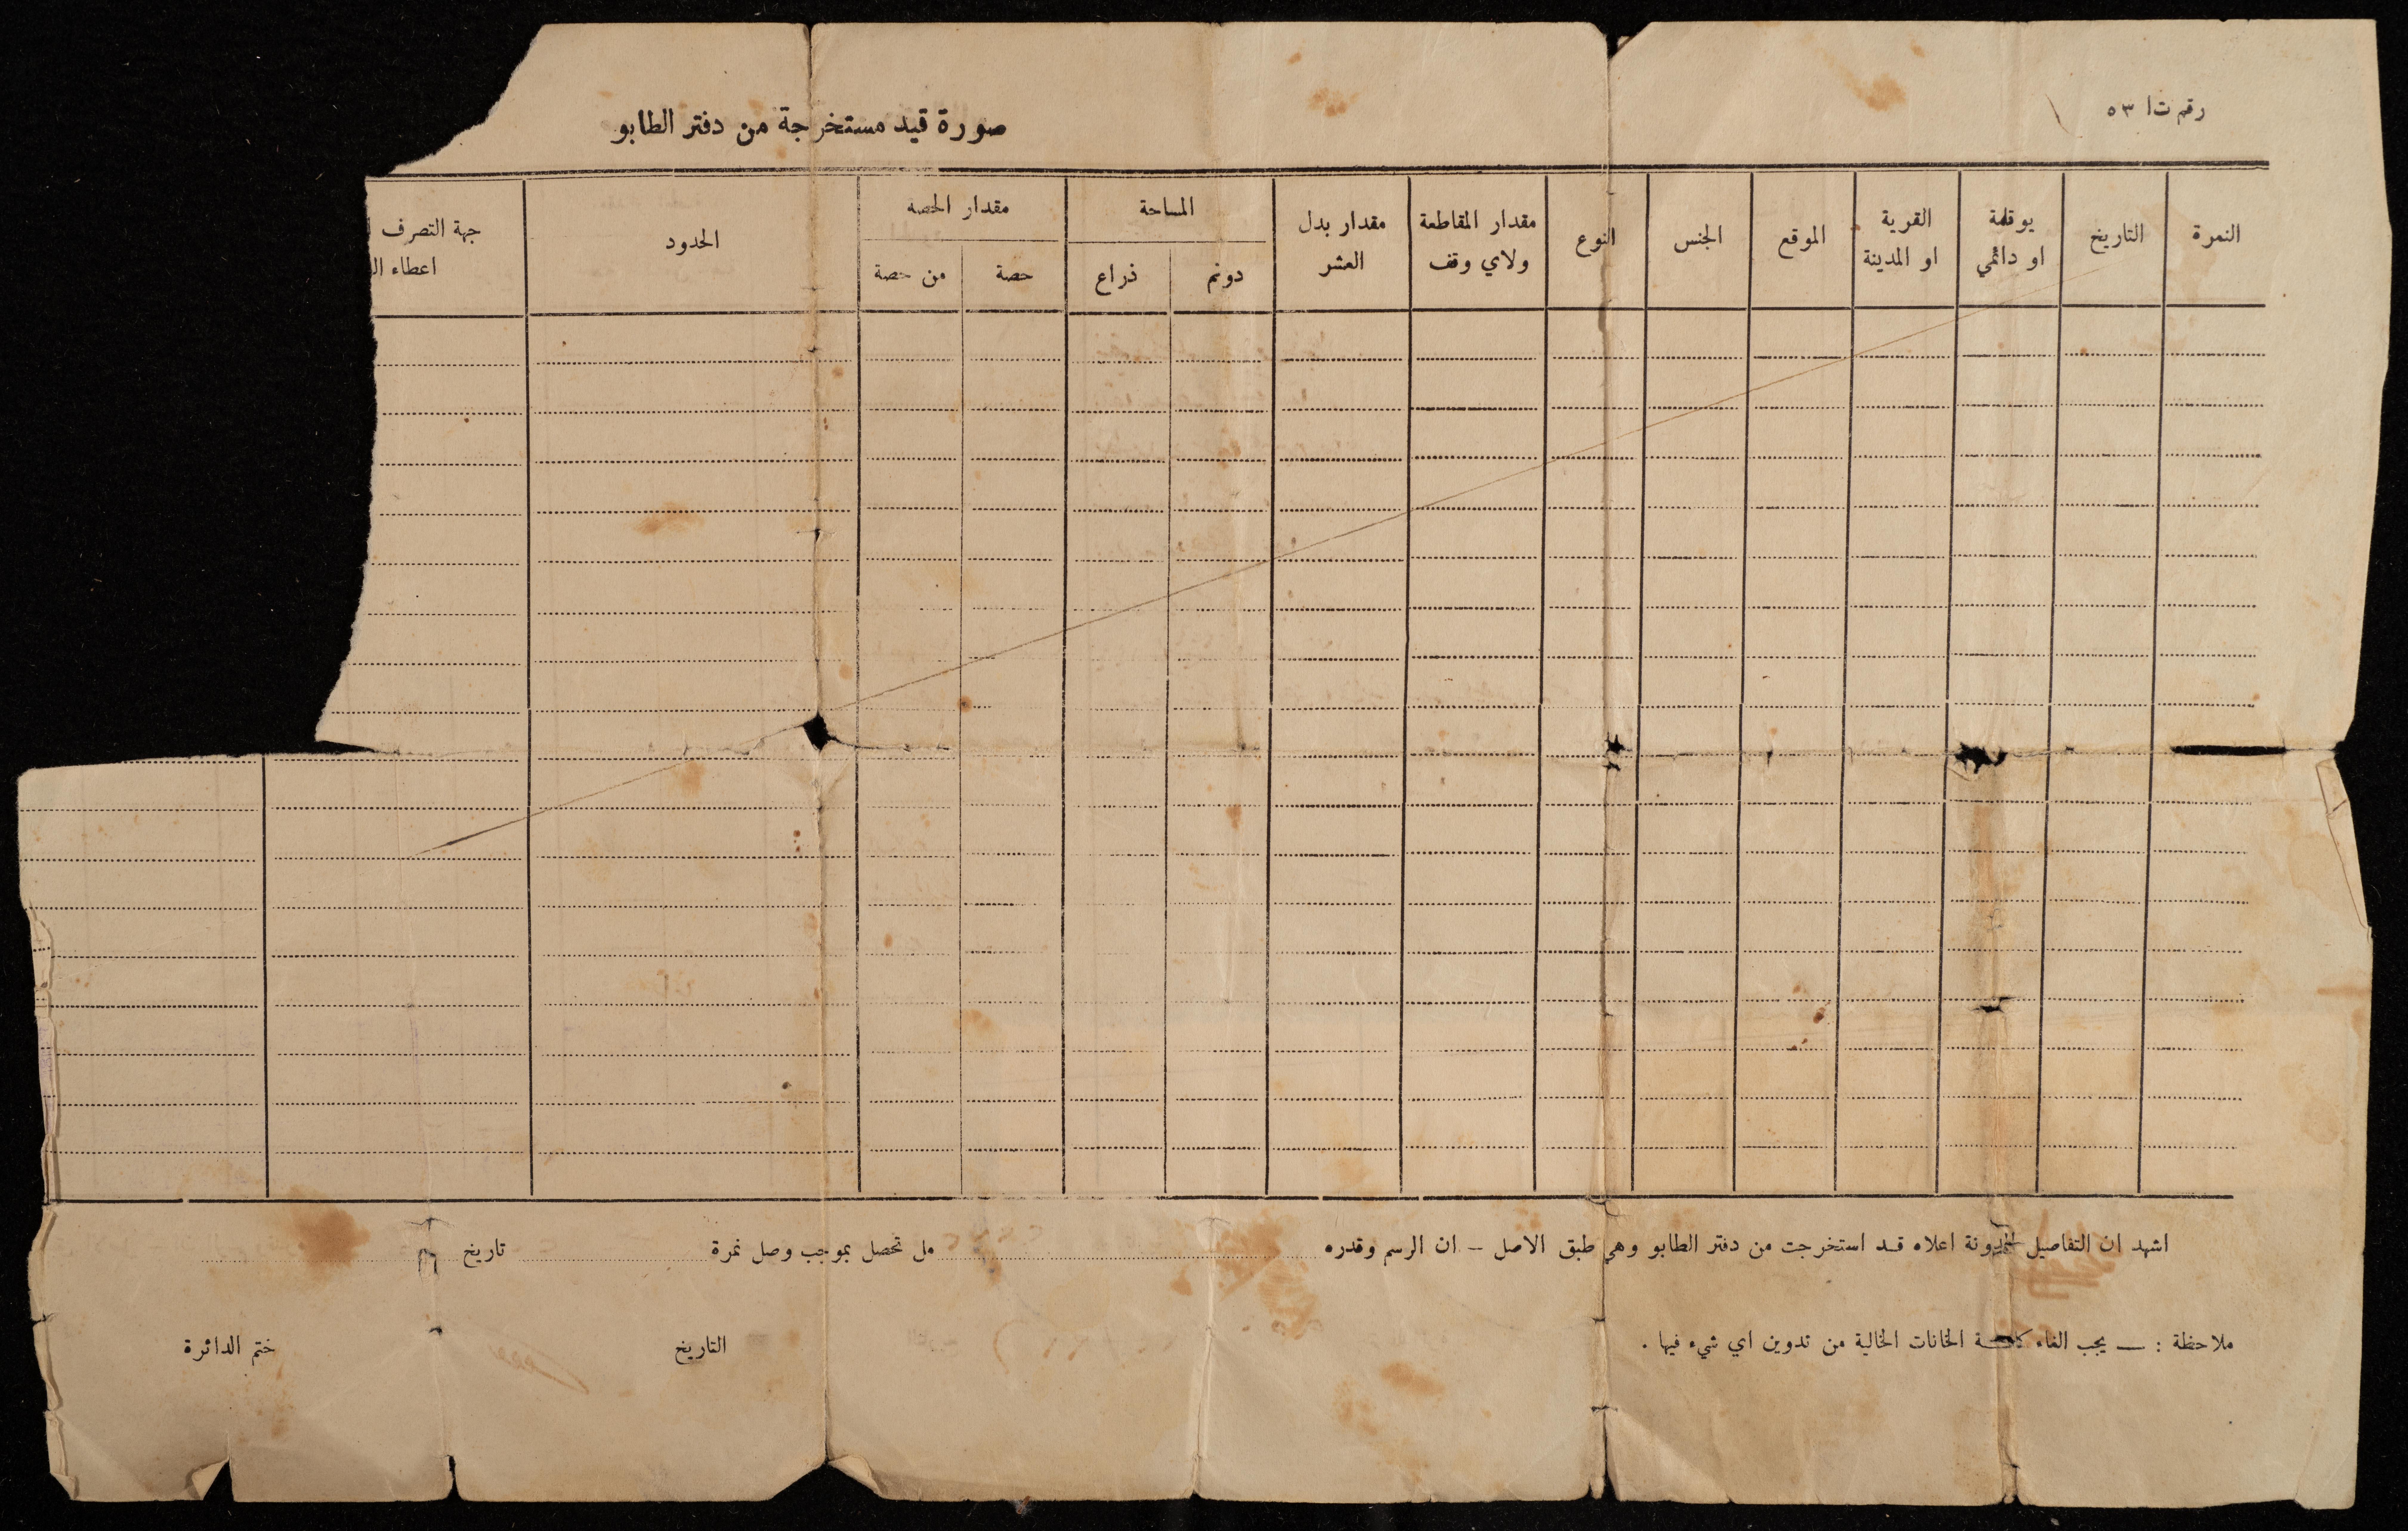 رقم ت ا ٥٣
صورة قيد مستخرجة من دفتر الطابو
النمرة
التاريخ
يوقلمة
او دائمي
القرية
او المدينة
الموقع
الجنس
النوع
مقدار المقاطعة
ولاي وقف
مقدار بدل
العشر
المساحة
دونم
ذراع
مقدار الحصه
حصة
من حصة
الحدود
جهة التصرف
اعطاء
اشهد ان التفاصيل المدونة اعلاه قد استخرجت من دفتر الطابو وهي طبق الاصل — ان الرسم وقدره مل تحصل بموجب وصل نمرة تاريخ
ملاحظة : — يجب الغاء كافة الخانات الخالية من تدوين اي شيء فيها .
التاريخ
ختم الدائرة